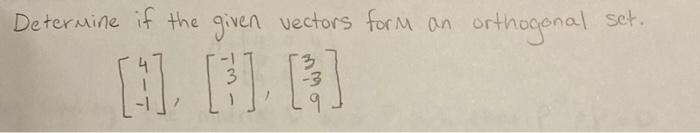 Determine if the given vectors form an orthogonal set.
[4 1 -1], [-1 3 1], [3 -3 9]